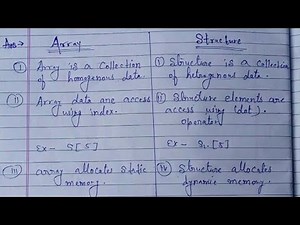 Ans → Array
Structure
① Array is a collection
of homogenous data.
① Structure is a collection
of hetrogenous data.
⑪ Array data are access
using index.
⑪ Structure elements are
access using (dot).
operator
Ex - S[5]
Ex -
⑪⑪ array allocates static
memory.
Structure allocates
dynamic memory.